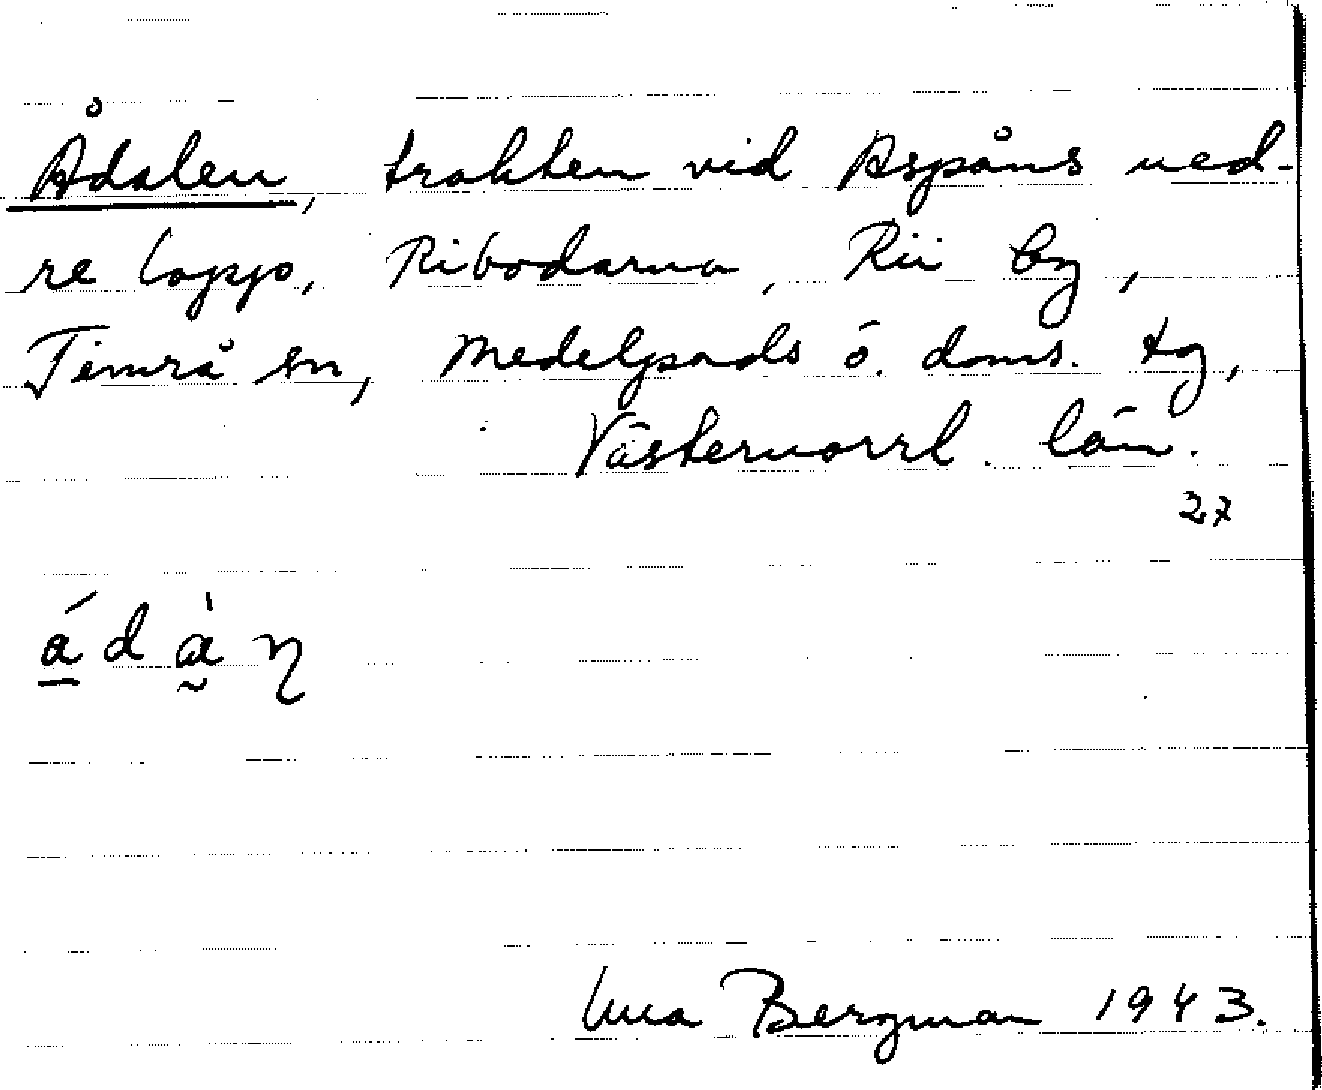 Ådalen, trakten vid Aspåns ned-
re lopp, Ribodarna, Rii by,
Timrå sn, Medelpads ö. doms. tg,
Västernorrl. län.
27
Bergman 1943.